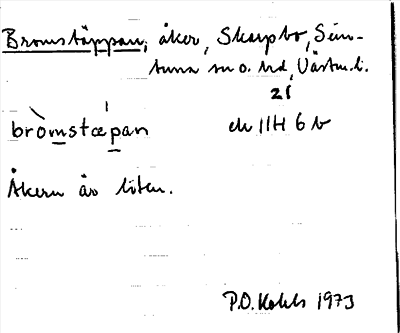 Bromstäppan, åker, Skarpbo, Sim-
tuna sn o. hd, Västm.l.
21
bròmstæpan ek 11H 6 b
Åkern är liten.
P.O. 1973